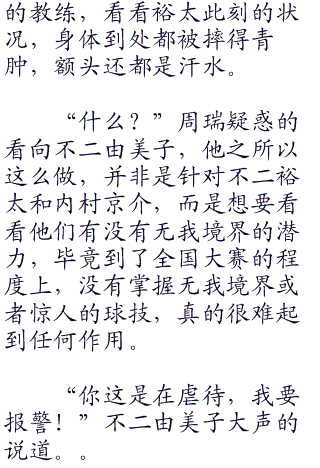 的教练，看看裕太此刻的状
况，身体到处都被摔得青
肿，额头还都是汗水。
“什么？”周瑞疑惑的
看向不二由美子，他之所以
这么做，并非是针对不二裕
太和内村京介，而是想要看
看他们有没有无我境界的潜
力，毕竟到了全国大赛的程
度上，没有掌握无我境界或
者惊人的球技，真的很难起
到任何作用。
“你这是在虐待，我要
报警！”不二由美子大声的
说道。。